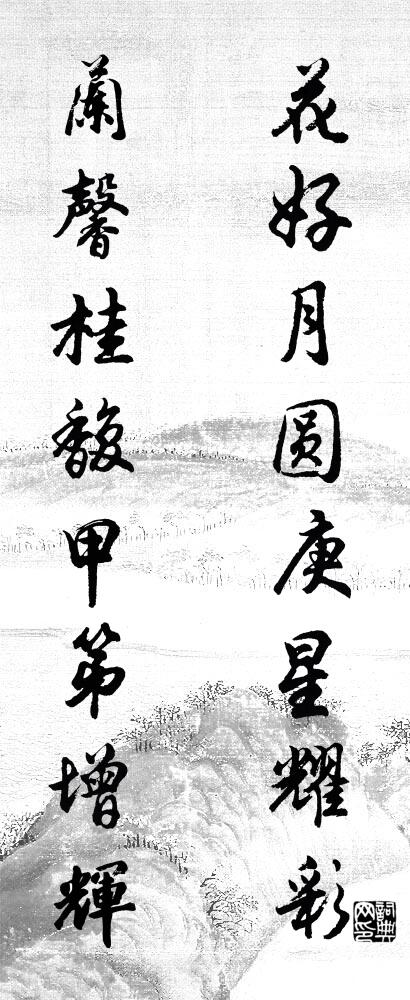 花好月圆庚星耀彩
蘭馨桂馥甲第增輝
詞典网印